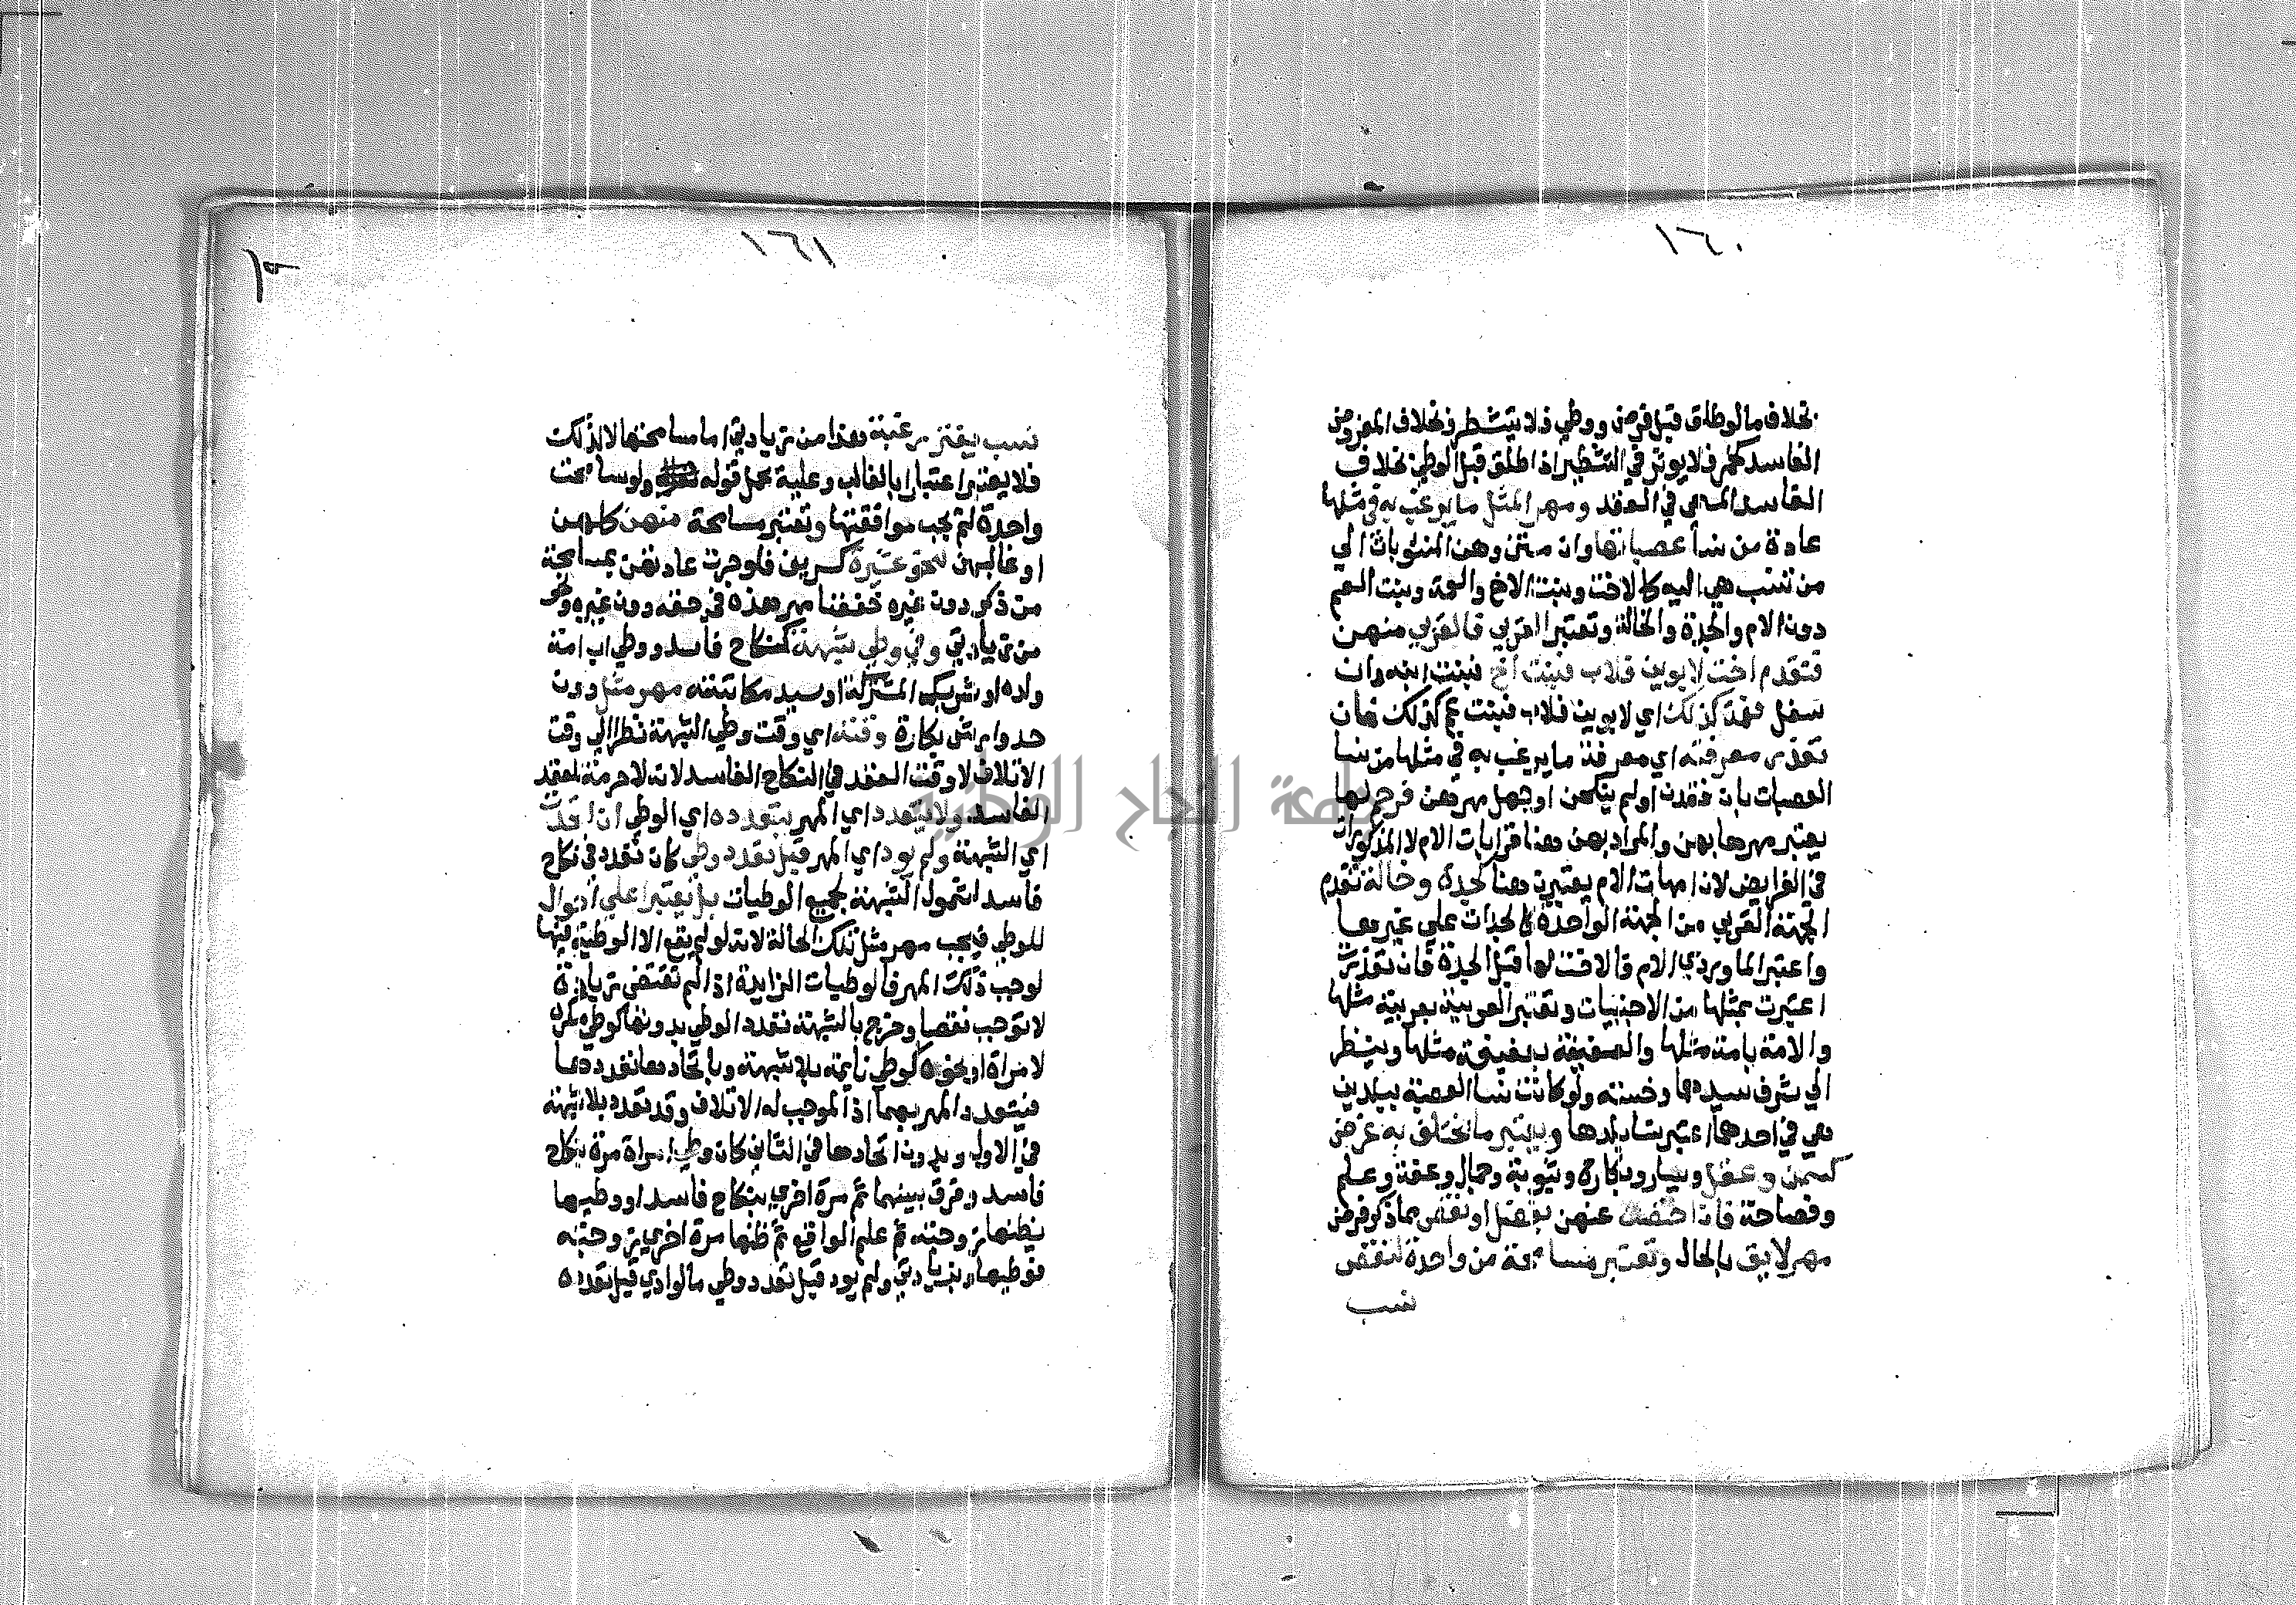 ١٦٠
بخلاف ما لو طلق قبل فرض ووطي فلا يتشطر وبخلاف المفروض
الفاسد كخمر فلا يوثر في التشطير اذا طلق قبل الوطي بخلاف
الفاسد المسمي في العقد ومهر المثل ما يرغب به في مثلها
عادة من نسا عصباتها وان متن وهن المنسوبات الي
من تنسب هي اليه كالاخت وبنت الاخ والعمة وبنت العم
دون الام والجدة والخالة وتعتبر القربي فالقربي منهن
فتقدم اخت لابوين فلاب فبنت اخ فبنت ابنه وان
سفل فعمة كذلك اي لابوين فلاب فبنت عم كذلك فان
تعذر معرفته اي معرفة ما يرغب به في مثلها من نسا
العصبات بان فقدن اولم ينكحن اوجهل مهرهن فرحم لها
يعتبر مهرها بهن والمراد بهن هنا قرابات الام لا المذكورات
في الفرايض لان امهات الام يعتبرن هنا كجدة وخالة تقدم
الجهة القربي من الجهة الواحدة كالجدات علي غيرها
واعتبر الماوردي الام فالاخت لها قبل الجدة فان تعذرت
اعتبرت بمثلها من الاجنبيات وتعتبر العربية بعربية مثلها
والامة بامة مثلها والعتيقة بعتيقة مثلها وينظر
الي شرف سيدها وخسته ولو كانت نسا العصبة ببلدين
هي في احدهما اعتبر نسا بلدها ويعتبر ما يختلف به غرض
كسن وعقل ويسار وبكارة وثيوبة وجمال وعفة وعلم
وفصاحة فان اختصت عنهن بفضل او نقص مما ذكر فرض
مهر لايق بالحال وتعتبر مسامحة من واحدة لنقص
نسب
١٦١
نسب يفتر رغبة هذا من زيادتي اما مسامحتها لا لذلك
فلا يعتبر اعتبارا بالغالب وعليه يحمل قوله ولو سامحت
واحدة لم يجب موافقتها وتعتبر مسامحة منهن كلهن
او غالبهن لنحو عشيرة كشريف فلو جرت عادتهن بمسامحة
من ذكر دون غيره خففنا مهر هذه في حقه دون غيره ونحو
من زيادتي وفي وطي شبهة كنكاح فاسد ووطي اب امة
ولده او شريك المشتركة او سيد مكاتبته مهر مثل دون
حد وارش بكارة وقته اي وقت وطي الشبهة نظرا الي وقت
الاتلاف لا وقت العقد في النكاح الفاسد لانه لا حرمة لعقد
الفاسد ولا يتعدد اي المهر بتعدده اي الوطي ان اتحدت
اي الشبهة ولم يود اي المهر قبل تعدد وطي كان تعدد في نكاح
فاسد لشمول الشبهة لجميع الوطيات بل يعتبر اعلي احوال
للوطي فيجب مهر مثل تلك الحالة لانه لو لم يقع الا الوطية فيها
لوجب ذلك المهر فالوطيات الزايدة اذا لم تقتض زيادة
لا توجب نقصا وخرج بالشبهة تعدد الوطي بدونها كوطي مكره
لامراة او نحوه كوطي نايمة بلا شبهة وباتحادها تعددها
فيتعدد المهر بهما اذ الموجب له الاتلاف وقد تعدد بلا شبهة
في الاول وبدون اتحادها في الثاني كان وطي امراة مرة بنكاح
فاسد وفرق بينهما ثم مرة اخري بنكاح فاسد او وطيها
يظنها زوجته ثم علم الواقع ثم ظنها مرة اخري زوجته
فوطيها وبزيادتي ولم يود قبل تعدد وطي ما لو ادي قبل تعدده